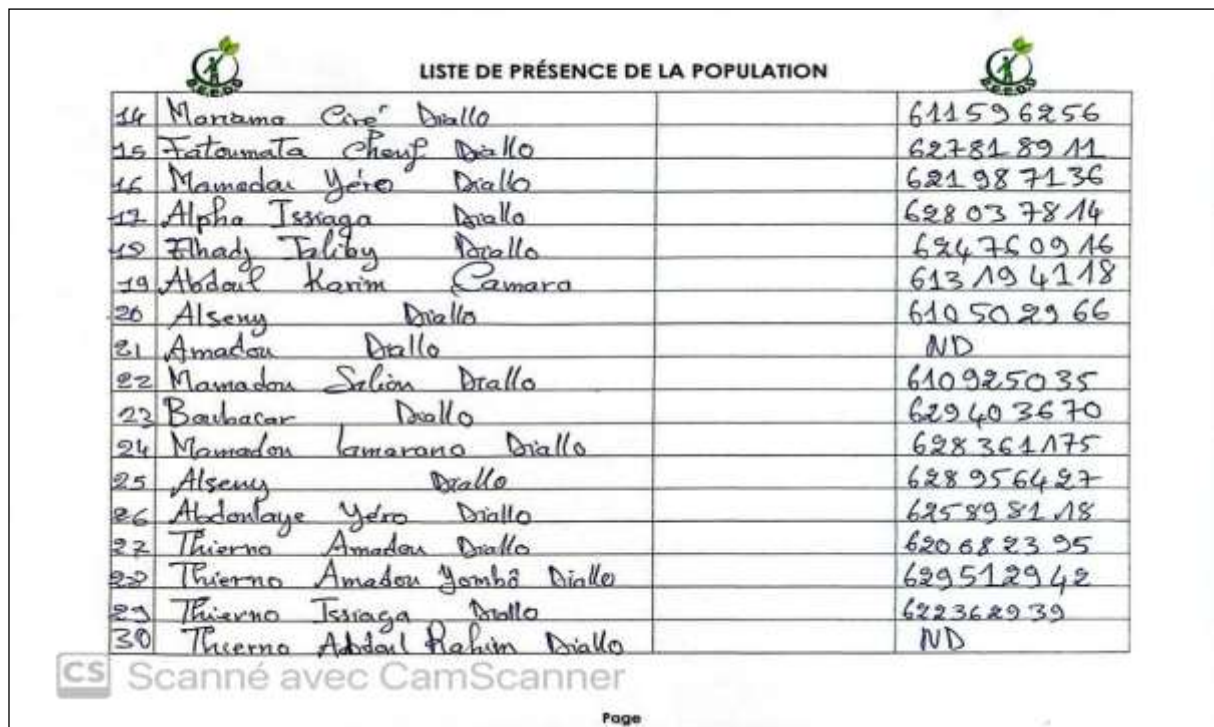 LISTE DE PRÉSENCE DE LA POPULATION
14 Mariama Ciré Diallo 611596256
15 Fatoumata Cherif Diallo 627818911
16 Mamadou Yéro Diallo 621987136
17 Alpha Issiaga Diallo 628037814
18 Elhadj Taliby Diallo 624760916
19 Abdoul Karim Camara 613194118
20 Alseny Diallo 610502966
21 Amadou Diallo ND
22 Mamadou Saliou Diallo 610925035
23 Boubacar Diallo 629403670
24 Mamadou Lamarana Diallo 628361175
25 Alseny Diallo 628956427
26 Abdoulaye Yéro Diallo 625898118
27 Thierno Amadou Diallo 620682395
28 Thierno Amadou Yombô Diallo 629512942
29 Thierno Issiaga Diallo 622362939
30 Thierno Abdoul Rahim Diallo ND
CS Scanné avec CamScanner
Page